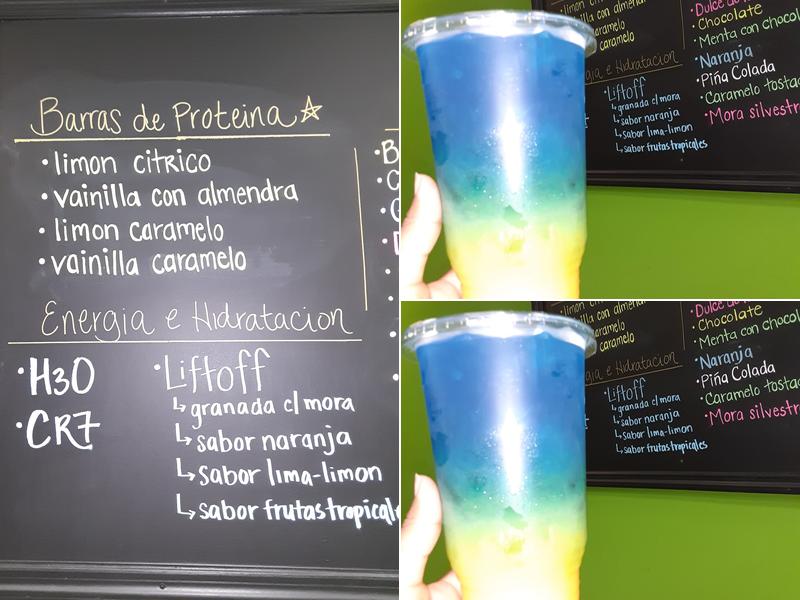 Barras de Proteina
• limon citrico
• vainilla con almendra
• limon caramelo
• vainilla caramelo
Energia e Hidratacion
• H3O
• CR7
• Liftoff
↳ granada c/ mora
↳ sabor naranja
↳ sabor lima-limon
↳ sabor frutas tropicale
caramelo
gia e Hidratacion
• Liftoff
↳ granada c/ mora
↳ sabor naranja
↳ sabor lima-limon
↳ sabor frutas tropicales
• Chocolate
• Menta con chocol
• Naranja
• Piña Colada
• Caramelo tosta
• Mora silvestr
caramelo
gia e Hidratacion
• Liftoff
↳ granada c/ mora
↳ sabor naranja
↳ sabor lima-limon
↳ sabor frutas tropicales
• Chocolate
• Menta con chocol
• Naranja
• Piña Colada
• Caramelo tosta
• Mora silvestr